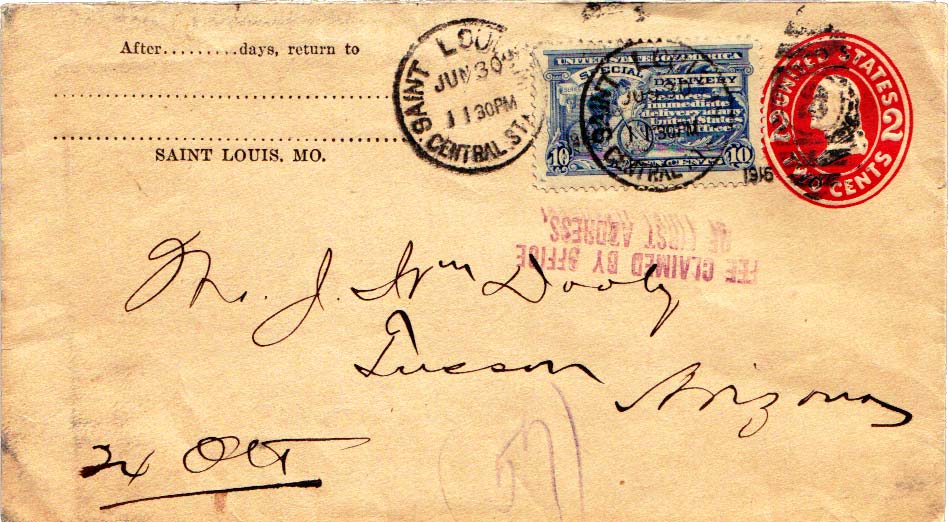 After.........days, return to
SAINT LOUIS, MO.
SAINT LOUIS
JUN 30
11 30 PM
CENTRAL STA
UNITED STATES OF AMERICA
SPECIAL DELIVERY
Secures
immediate
delivery at any
United States
Post Office
10 TEN CENTS 10
SAINT L
JUN 30
11 30 PM
CENTRAL
1916
UNITED STATES
2 2
TWO CENTS
FEE CLAIMED BY OFFICE
OF FIRST ADDRESS.
Mr. J. Wm Dooly
Tucson
Arizona